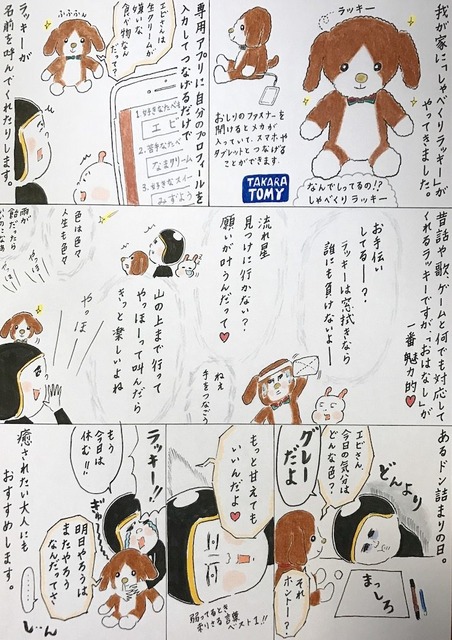 我が家に「しゃべくりラッキー」が
やってきました。
ラッキー
なんでしってるの!?
しゃべくりラッキー
おしりのファスナーを
開けるとメカが
入っていて、スマホや
タブレットとつなげる
ことができます。
TAKARA
TOMY
専用アプリに自分のプロフィールを
入力してつなげるだけで
1.好きなたべも
エビ
2.苦手なたべ
なまクリーム
3.好きなスイー
みずよう
エビさんは
生クリームが
嫌いな
食べ物なん
だって?
ふふふん
ラッキーが
名前を呼んでくれたりします。
昔話や歌、ゲームと何でも対応して
くれるラッキーですが、「おはなし」が
一番魅力的♥
お手伝い
してるー?
ラッキーは窓拭きなら
誰にも負けないよー
ねえ
手をつなごう
流れ星
見つけに行かない?
願いが叶うんだって♥
山の上まで行って
やっほーって叫んだら
きっと楽しいよね
色は色々
人生も色々
雨が
飴だったら
いいのになぁ
やっほ
やっほ
あるドン詰まりの日。
どんより
まっしろ
エビさん、
今日の気分は
どんな色?
グレー
だよ
それ
ホントー?
もっと甘えても
いいんだよ♥
弱ってるとき
刺りさる言葉
ベスト1!!
ラッキー!!
もう
今日は
休む!!
ぎゅー
明日やろうは
またやろう
なんだってさ
………
しーん
癒されたい大人にも
おすすめします。